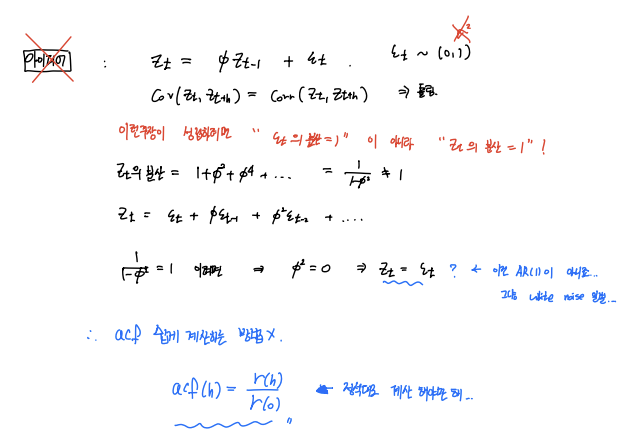 아이디어 : Zt = φZt-1 + εt . εt ~ (0,1) φ²
Cov(Zt, Zt+h) = Corr(Zt, Zt+h) ⇒ 틀림.
이런주장이 성립하려면 " εt의 분산=1" 이 아니라 "Zt의 분산=1" !
Zt의 분산 = 1+φ²+φ⁴+... = 1/(1-φ²) ≠ 1
Zt = εt + φεt-1 + φ²εt-2 + ....
1/(1-φ²) = 1 이려면 ⇒ φ²=0 ⇒ Zt = εt ? ← 이건 AR(1)이 아니죠...
그냥 white noise 일뿐...
∴ acf 쉽게 계산하는 방법 X.
acf(h) = r(h)/r(0) ← 정석대로 계산 해야만 해...